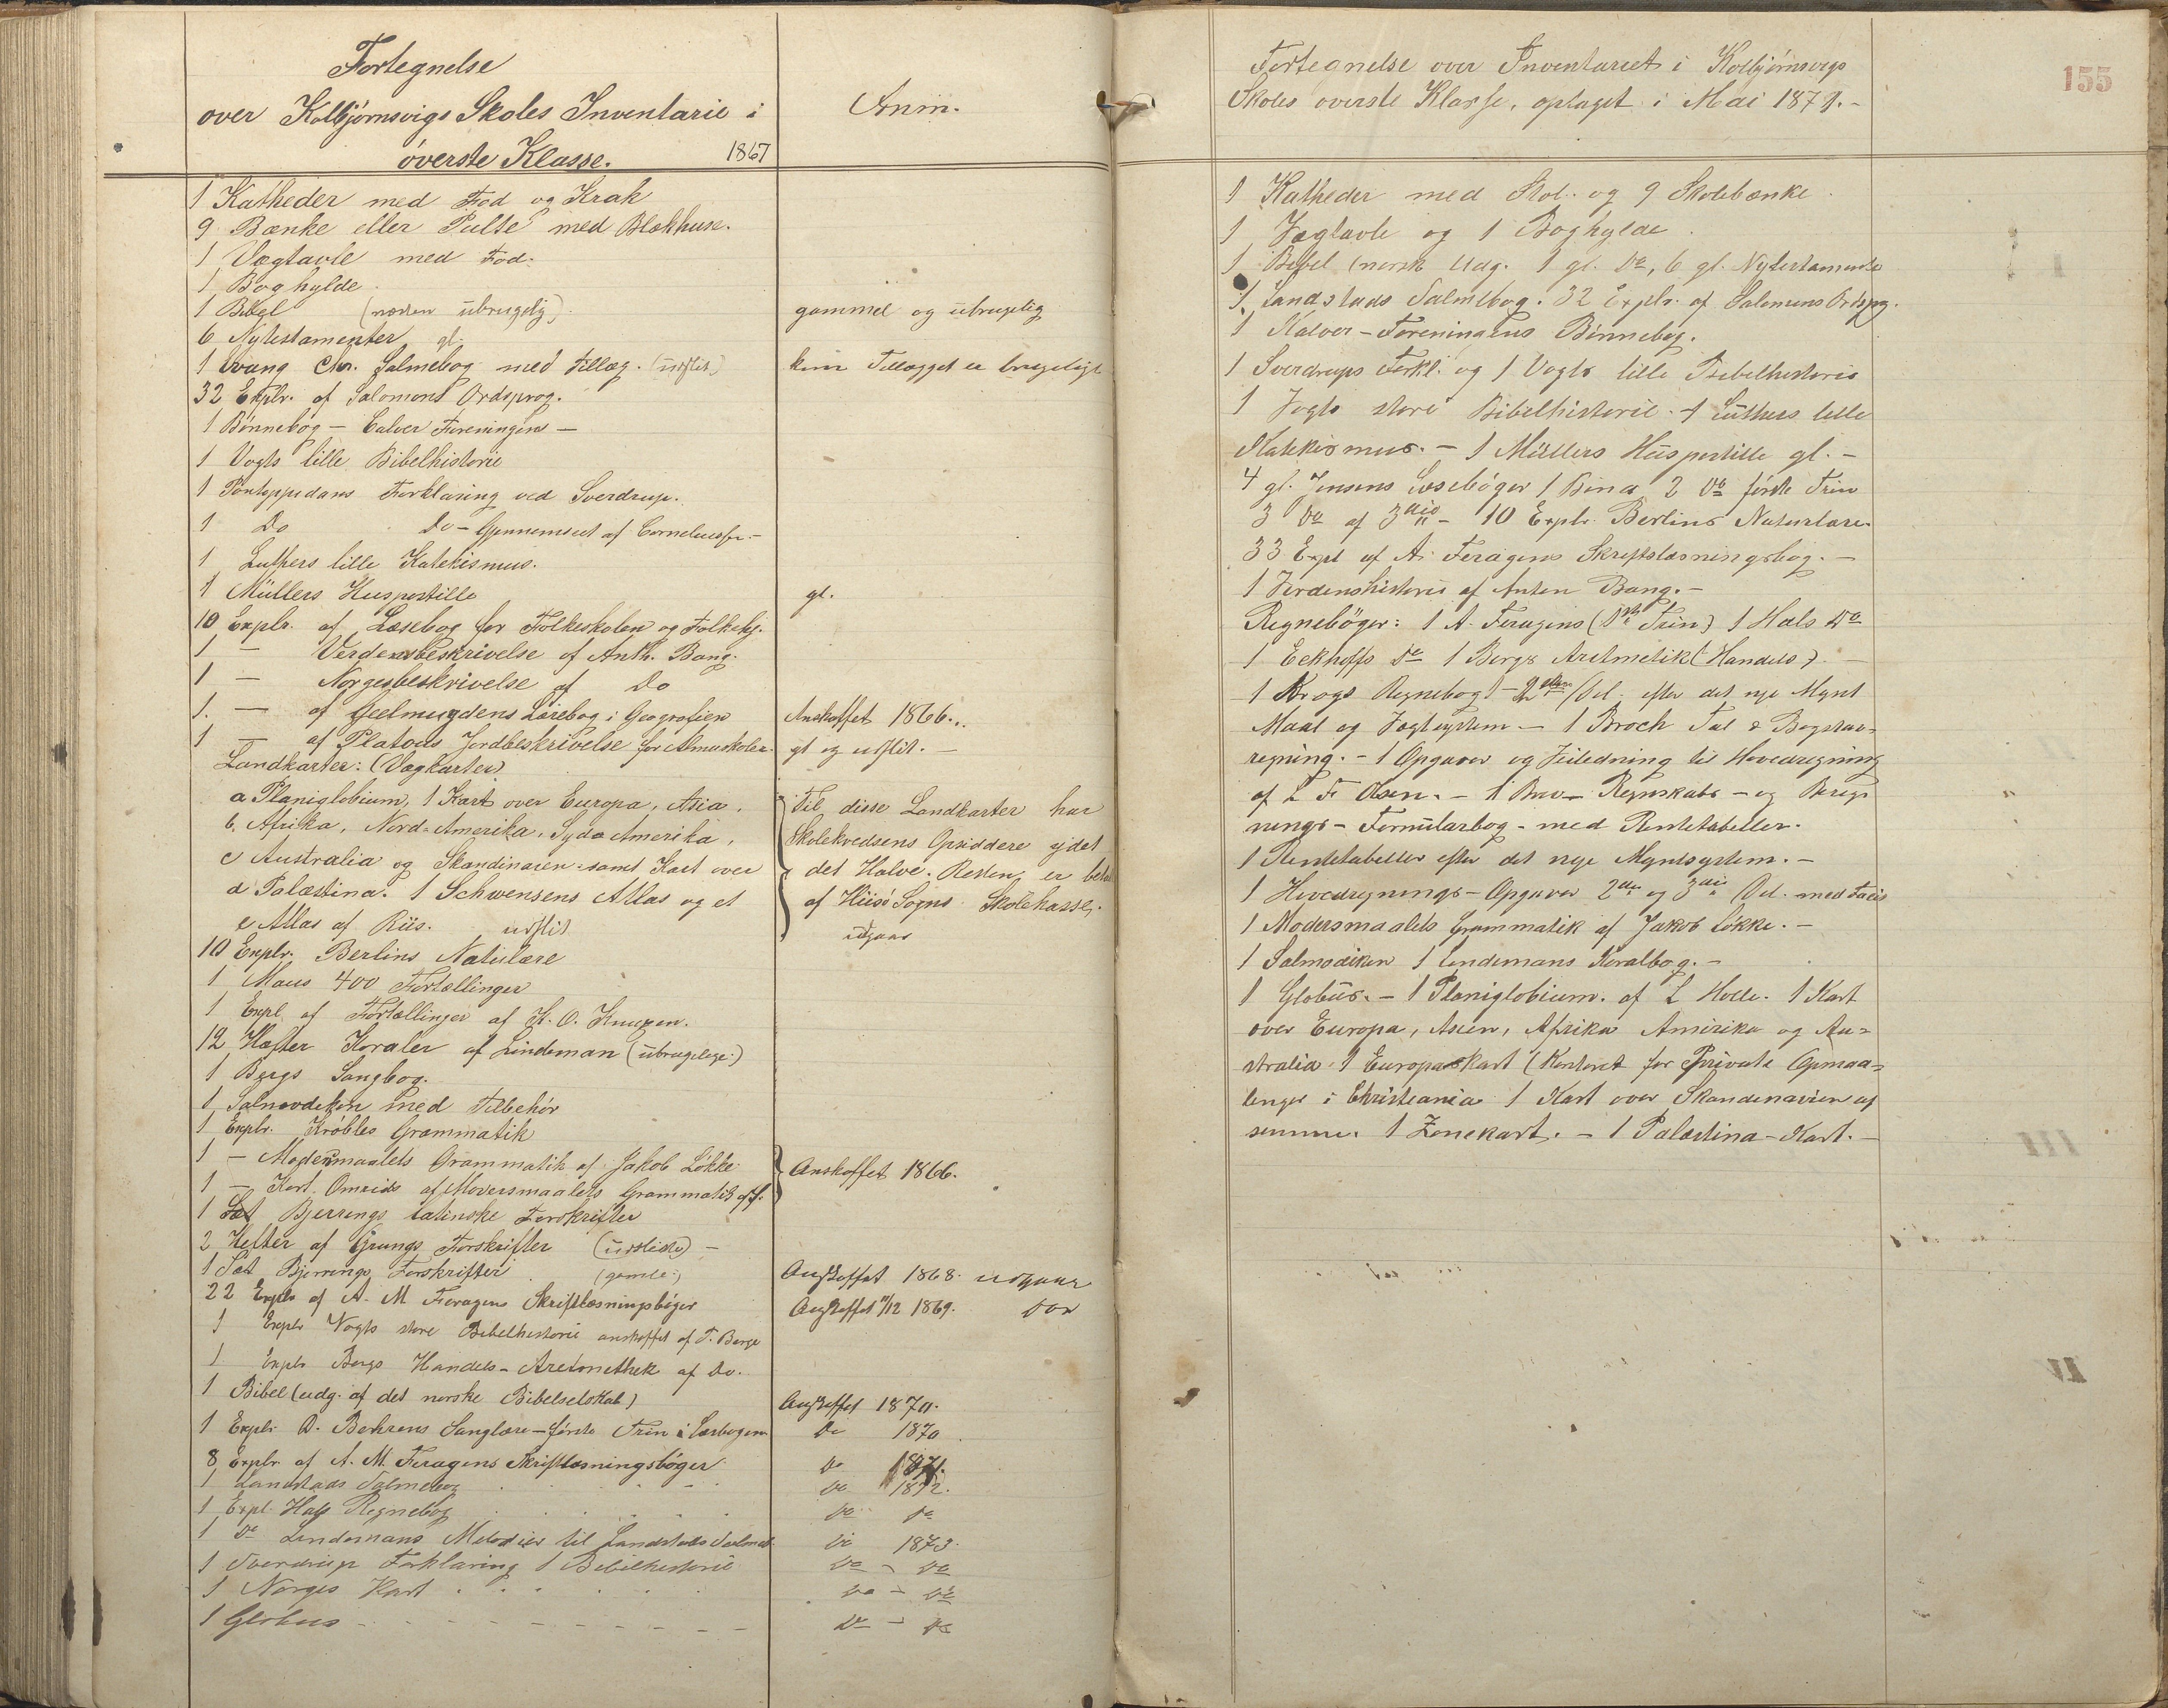 Fortegnelse
over Kolbjørnsvigs Skoles Inventarie i
øverste Klasse. 1867
Anm.
1 Katheder med Fod og Krak
9 Bænke eller Pulte med Blækhuse.
1 Vægtavle med Fod.
1 Boghylde.
1 Bibel (næsten ubrugelig). gammel og ubrugelig
6 Nytestamenter gl.
1 Evang. Chr. Salmebog med Tillæg. (udslidt) kun Tillægget er brugeligt
32 Explr. af Salomons Ordsprog.
1 Bønnebog — Calver Foreningens —
1 Vogts lille Bibelhistorie
1 Pontoppidans Forklaring ved Sverdrup.
1 Do Do — Gjennemseet af
1 Luthers lille Katekismus.
1 Müllers Huspostille gl.
10 Explr. af Læsebog for Folkeskolen og Folkehj.
1 — Verdensbeskrivelse af Anth. Bang.
1 — Norgesbeskrivelse af Do
1. — af Geelmuydens Lærebog i Geografien Anskaffet 1866.
1 — af Platous Jordbeskrivelse for Almuskoler. gl og udslit. —
Landkarter: (Vægkarter)
a Planiglobium, 1 Kart over Europa, Asia,
b. Afrika, Nord-Amerika, Syd-Amerika,
c Australia og Skandinavien samt Kart over
d Palæstina. 1 Schwensens Atlas og et
e Atlas af Riis. udslit
Til disse Landkarter har
Skolekredsens Opsiddere ydet
det Halve. Resten er betalt
af Hiisø Sogns Skolekasse.
udgaar
10 Explr. Berlins Naturlære
1 Maus 400 Fortællinger
1 Expl. af Fortællinger af K. O. Knutzen.
12 Hæfter Koraler af Lindeman (ubrugelige)
1 Bergs Sangbog.
1 Salmodikon med Tilbehør
1 Explr. Grammatik
1 — Modersmaalets Grammatik af Jakob Løkke
1 — Kort Omrids af Modersmaalets Grammatik af
Anskaffet 1866.
1 Sæt Bjerrings latinske Forskrifter
2 Hefter af Grungs Forskrifter (udslidte) —
1 Sæt Bjerrings Forskrifter (gamle) Anskaffet 1868. udgaar
22 Explr af A. M. Feragens Skriftlæsningsbøger Anskaffet 11/12 1869.
1 Explr Vogts store Bibelhistorie anskaffet af T. Berge
1 Explr Bergs Handels-Aritmethik af Do.
1 Bibel (udg. af det norske Bibelselskab) Anskaffet 1870.
1 Explr D. Behrens Sanglære — første Trin i Do 1870
8 Explr. af A. M. Feragens Skriftlæsningsbøger Do 1871.
1 Landstads Salmebog Do 1872.
1 Expl. Hals Regnebog Do Do
1 Do Lindemans Melodier til Landstads Salmeb. Do 1873.
1 Sverdrups Forklaring 1 Bibelhistorie Do — Do
1 Norges Kart Do — Do
1 Globus Do — Do
155
Fortegnelse over Inventariet i Kolbjørnsvigs
Skoles øverste Klasse, optaget i Mai 1879. —
1 Katheder med Stol. og 9 Skolebænke.
1 Vægtavle og 1 Boghylde.
1 Bibel (norsk Udg. 1 gl. Do, 6 gl. Nytestamente
1. Landstads Salmebog. 32 Explr. af Salomons Ordspg.
1 Kalver-Foreningens Bønnebog.
1 Sverdrups Forkl. og 1 Vogts lille Bibelhistorie
1 Vogts store Bibelhistorie. 1 Luthers lille
Katekismus. — 1 Müllers Huspostille gl. —
4 gl. Jensens Læsebøger 1 Bind 2 Do første Trin
3 Do af 3die — 10 Explr. Berlins Naturlære
33 Expl af A. Feragens Skriftlæsningsbog. —
1 Verdenshistorie af Anton Bang. —
Regnebøger: 1 A. Feragens (1ste Trin) 1 Hals Do
1 Eckhoffs Do 1 Bergs Aritmetik (Handels). —
1 Krogs Regnebog 2den Del. efter det nye Mynt
Maal og Vægtsystem — 1 Broch Tal & Bogstav=
regning. — 1 Opgaver og Veiledning til Hovedregning
af L F Olsen. — 1 Regnskabs — og Bereg
nings — Formularbog — med Rentetabeller.
1 Rentetabeller efter det nye Myntsystem. —
1 Hovedregnings-Opgaver 2den og 3die Del. med Facit
1 Modersmaalets Grammatik af Jakob Løkke. —
1 Salmodikon 1 Lindemans Koralbog. —
1 Globus. — 1 Planiglobium. af L Holle. 1 Kart
over Europa, Asien, Afrika Amirika og Au=
stralia 1 Europaskart (Kontoret for Private Opmaa=
linger i Christiania 1 Kart over Skandenavien af
samme. 1 Zonekart. — 1 Palæstina-Kart. —